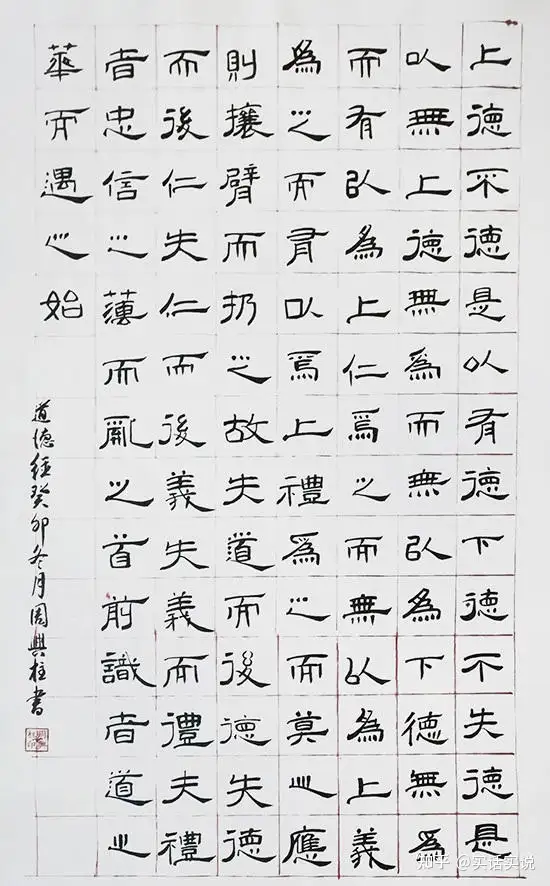 上德不德是以有德下德不失德是
以無上德無為而無以為下德無為
而有以為上仁為之而無以為上義
為之而有以為上禮為之而莫之應
則攘臂而扔之故失道而後德失德
而後仁失仁而後義失義而禮夫禮
者忠信之薄而亂之首前識者道之
華而遇之始
道德經癸卯冬月周興柱書
知乎 @实话实说